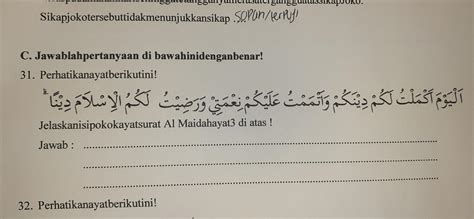 Sikapjokotersebuttidakmenunjukkansikap sopan/terpuji
C. Jawablahpertanyaan di bawahinidenganbenar!
31. Perhatikanayatberikutini!
اَلْيَوْمَ اَكْمَلْتُ لَكُمْ دِيْنَكُمْ وَاَتْمَمْتُ عَلَيْكُمْ نِعْمَتِيْ وَرَضِيْتُ لَكُمُ الْاِسْلَامَ دِيْنًاۗ
Jelaskanisipokokayatsurat Al Maidahayat3 di atas !
Jawab : ........................................................................
........................................................................
........................................................................
32. Perhatikanayatberikutini!